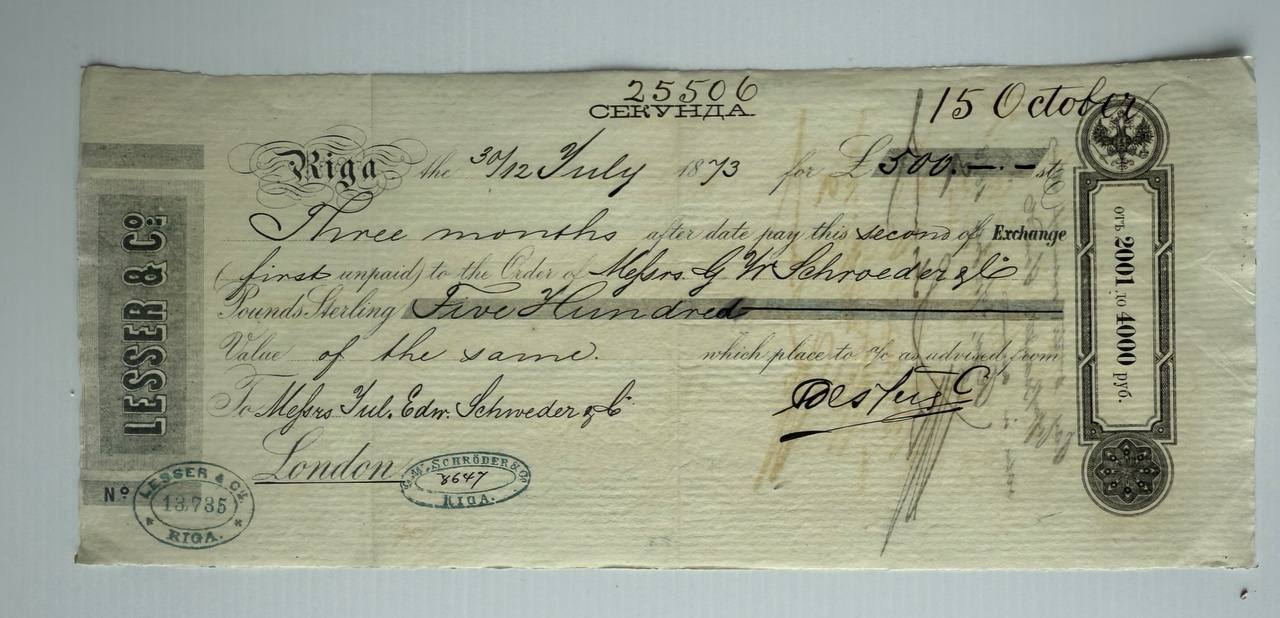 25506
СЕКУНДА
15 October
Riga the 30/12 July 1873 for £ 500.—.— st
Three months after date pay this second of Exchange
(first unpaid) to the Order of Messrs. G W Schroeder & Co
Pounds Sterling Five Hundred
Value of the same. which place to a/c as advised from
To Messrs Jul. Edw. Schweder & Co
London
LESSER & Co.
No
LESSER & Co. 13,735 RIGA.
G. W. SCHRÖDER & Co 8647 RIGA.
отъ 2001 до 4000 руб.